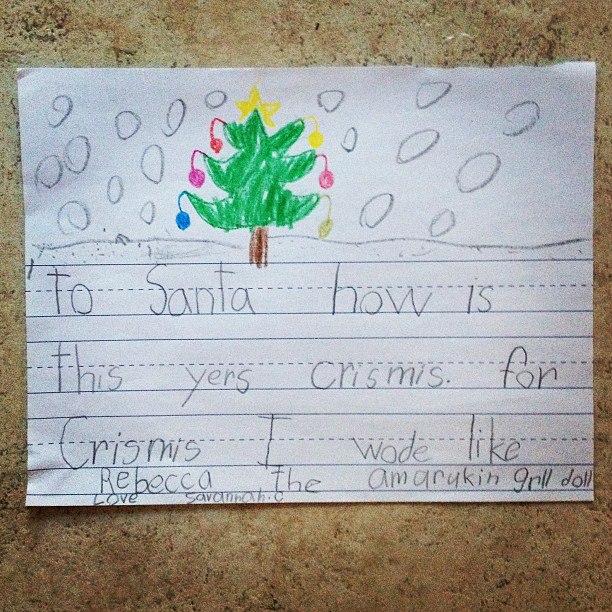 to Santa how is
this yers crismis. for
Crismis I wode like
Rebecca the amarukin grll doll
Love savannah.c